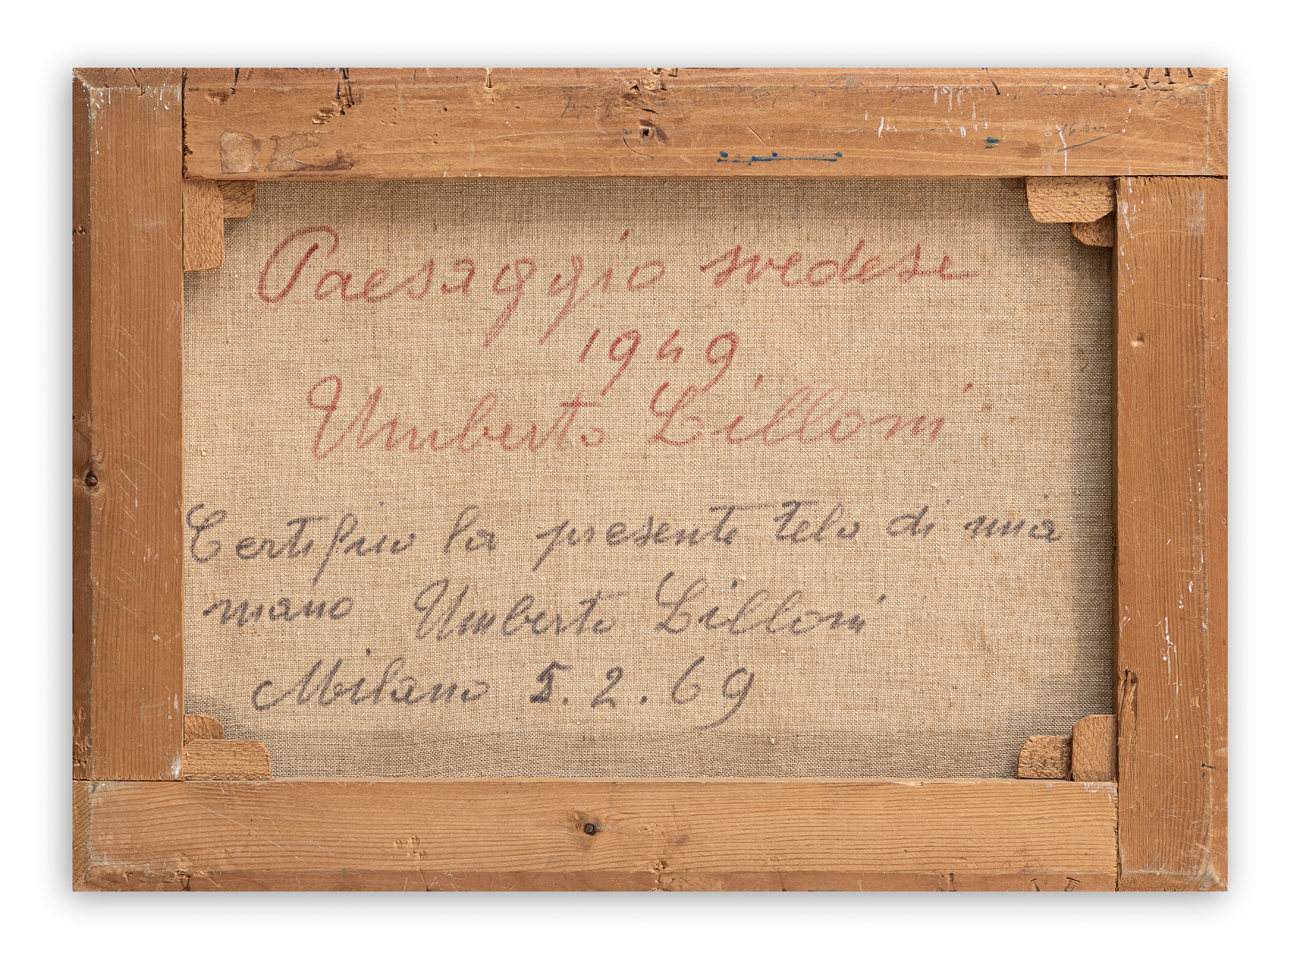 Paesaggio svedese
1949
Umberto Lilloni
Certifico la presente tela di mia
mano Umberto Lilloni
Milano 5.2.69